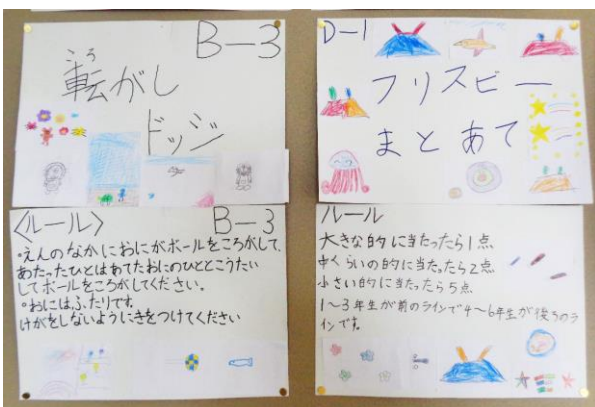 B-3
ころ
転がし
ドッジ
D-1
フリスビー
まとあて
〈ルール〉 B-3
•えんのなかにおにがボールをころがして、
あたったひとはあてたおにのひととこうたい
してボールをころがしてください。
•おにはふたりです。
けがをしないようにきをつけてください
ルール
大きな的に当たったら1点
中くらいの的に当たったら2点
小さい的に当たったら5点
1～3年生が前のラインで4～6年生が後ろのラ
インです。